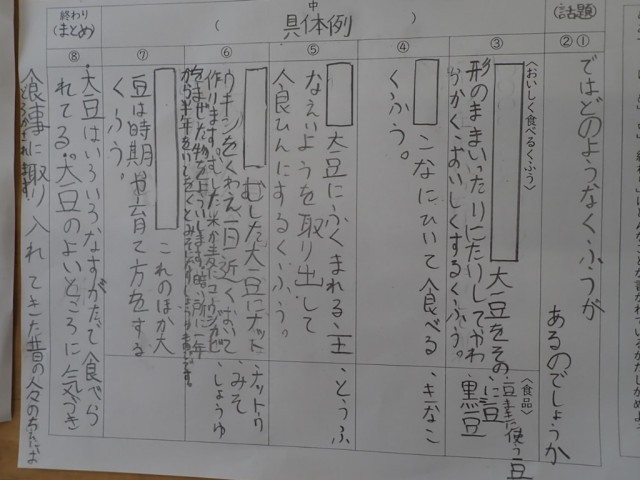 (話題)
中
(　具体例　)
終わり
(まとめ)
②①
③
④
⑤
⑥
⑦
⑧
ではどのようなくふうが
あるのでしょうか
〈おいしく食べるくふう〉
大豆をその
形のままいったりにたりしてやわ
らかくおいしくするくふう。
〈食品〉
豆まきに使う豆
に豆
黒豆
こなにひいて食べる
くふう。
きなこ
大豆にふくまれる主
なえいようを取り出して
食ひんにするくふう。
とうふ
むした大豆にナット
ウキンをくわえ一日近くおいて
作ります。むした米か麦にコウジカビ
ナットウ
みそ
しょうゆ
これのほか大
豆は時期や育て方をする
くふう。
大豆はいろいろなすがたで食べら
れてる。大豆のよいところに気づき
食事に取り入れてきた昔の人々のちえ